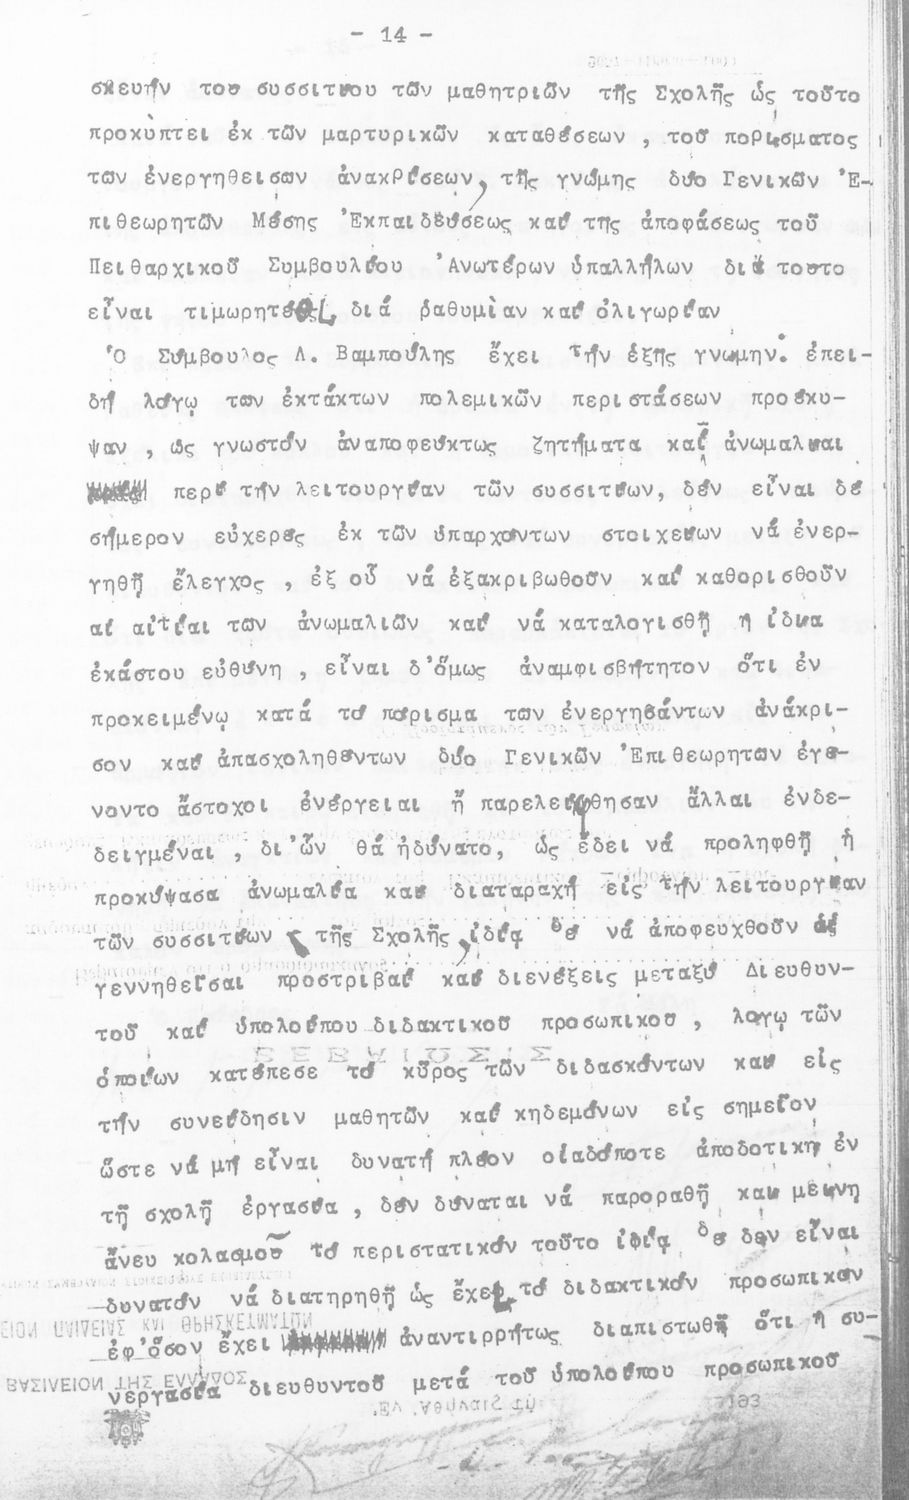 - 14 -
σκευήν του συσσιτίου τῶν μαθητριῶν τῆς Σχολῆς ὡς τοῦτο
προκύπτει ἐκ τῶν μαρτυρικῶν καταθέσεων , τοῦ πορίσματος
τῶν ἐνεργηθεισῶν ἀνακρίσεων, τῆς γνώμης δύο Γενικῶν Ἐ-
πιθεωρητῶν Μέσης Ἐκπαιδεύσεως καί τῆς ἀποφάσεως τοῦ
Πειθαρχικοῦ Συμβουλίου Ἀνωτέρων ὑπαλλήλων διά τοῦτο
εἶναι τιμωρητέοι διά ῥαθυμίαν καί ὀλιγωρίαν
Ὁ Σύμβουλος Λ. Βαμπούλης ἔχει τήν ἑξῆς γνώμην. ἐπει-
δή λόγῳ τῶν ἐκτάκτων πολεμικῶν περιστάσεων προέκυ-
ψαν , ὡς γνωστόν ἀναποφεύκτως ζητήματα καί ἀνωμαλίαι
περί τήν λειτουργίαν τῶν συσσιτίων, δέν εἶναι δέ
σήμερον εὐχερές ἐκ τῶν ὑπαρχόντων στοιχείων νά ἐνερ-
γηθῇ ἔλεγχος , ἐξ οὗ νά ἐξακριβωθοῦν καί καθορισθοῦν
αἱ αἰτίαι τῶν ἀνωμαλιῶν καί νά καταλογισθῇ ἡ ἰδία
ἑκάστου εὐθύνη , εἶναι δ' ὅμως ἀναμφισβήτητον ὅτι ἐν
προκειμένῳ κατά τό πόρισμα τῶν ἐνεργησάντων ἀνάκρι-
σον καί ἀπασχοληθέντων δύο Γενικῶν Ἐπιθεωρητῶν ἐγέ-
νοντο ἄστοχοι ἐνέργειαι ἤ παρελείφθησαν ἄλλαι ἐνδε-
δειγμέναι , δι' ὧν θά ἠδύνατο, ὡς ἔδει νά προληφθῇ ἡ
προκύψασα ἀνωμαλία καί διαταραχή εἰς τήν λειτουργίαν
τῶν συσσιτίων τῆς Σχολῆς, ἰδίᾳ δέ νά ἀποφευχθοῦν αἱ
γεννηθεῖσαι προστριβαί καί διενέξεις μεταξύ Διευθυν-
τοῦ καί ὑπολοίπου διδακτικοῦ προσωπικοῦ , λόγῳ τῶν
ὁποίων κατέπεσε τό κῦρος τῶν διδασκόντων καί εἰς
τήν συνείδησιν μαθητῶν καί κηδεμόνων εἰς σημεῖον
ὥστε νά μή εἶναι δυνατή πλέον οἱαδήποτε ἀποδοτική ἐν
τῇ σχολῇ ἐργασία , δέν δύναται νά παροραθῇ καί μείνῃ
ἄνευ κολασμοῦ τό περιστατικόν τοῦτο ἰδίᾳ δέ δέν εἶναι
δυνατόν νά διατηρηθῇ ὡς ἔχει τό διδακτικόν προσωπικόν
ἐφ' ὅσον ἔχει ἀναντιρρήτως διαπιστωθῇ ὅτι ἡ συ-
νεργασία διευθυντοῦ μετά τοῦ ὑπολοίπου προσωπικοῦ